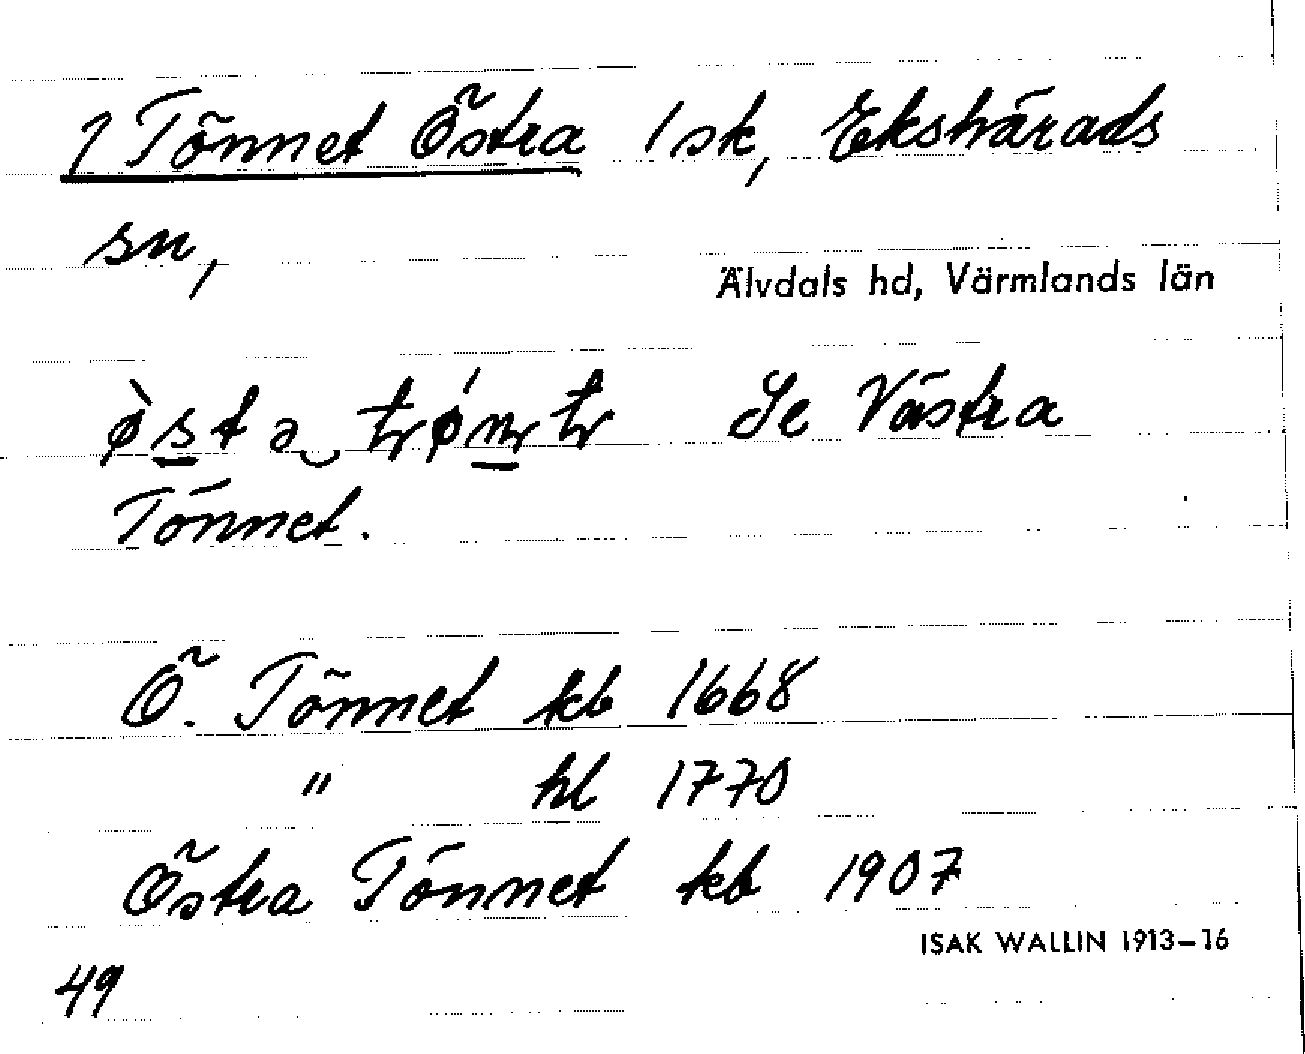 1 Tönnet Östra 1 sk, Ekshärads
sn,
Älvdals hd, Värmlands län
Se Västra
Tönnet.
Ö. Tönnet kb 1668
" hl 1770
Östra Tönnet kb 1907
ISAK WALLIN 1913–16
49